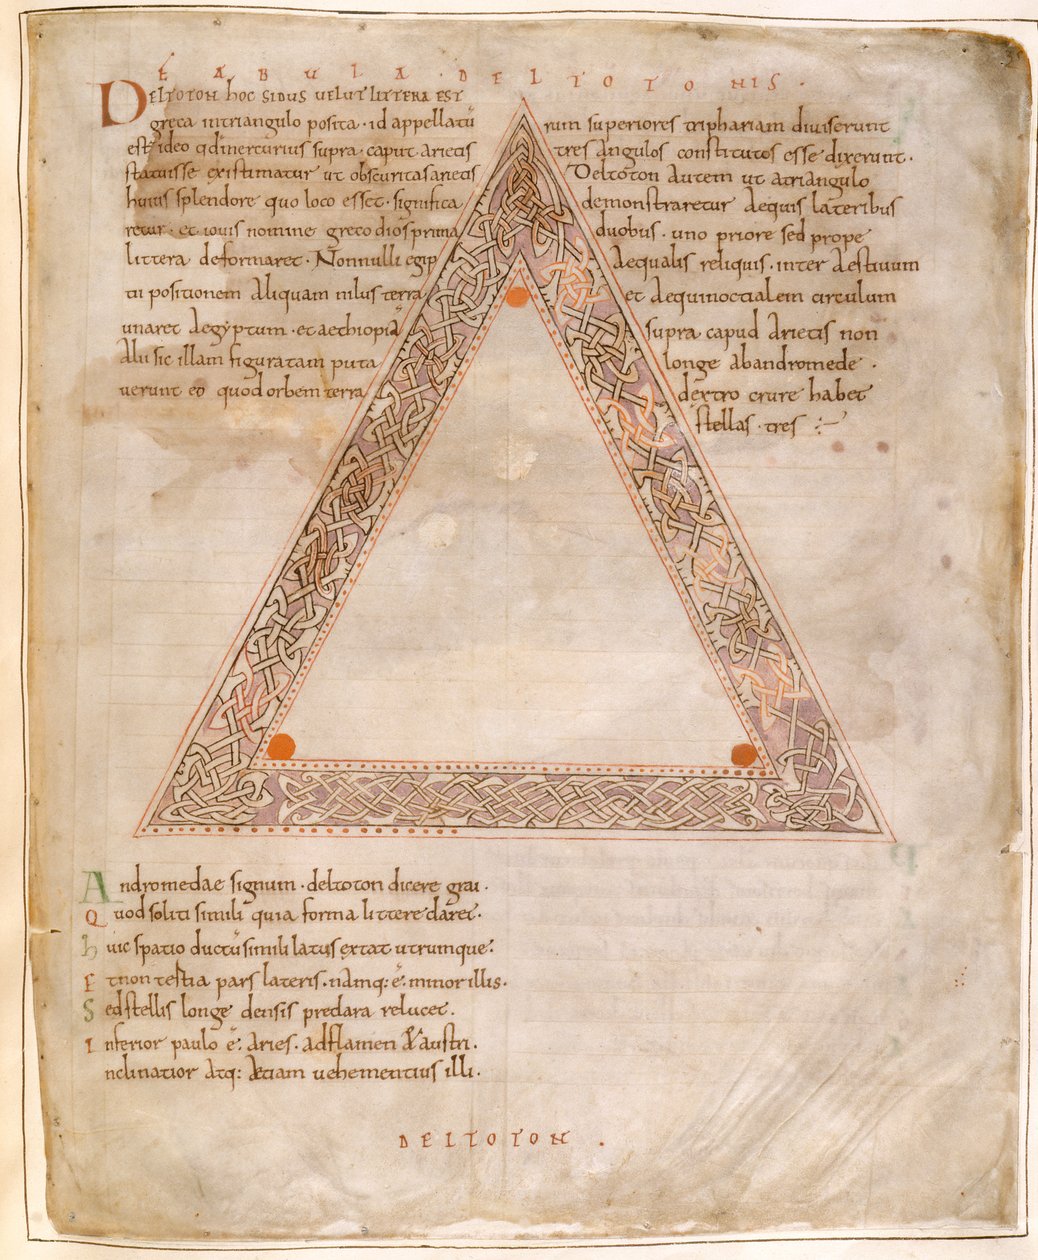 FABULA · DELTOTONIS ·
DELTOTON hoc SIDUS UELUT LITTERA EST
greca intriangulo posita · id appellatū
est ideo qdinercurius supra · caput arietis
statuisse existimatur ut obscuritasarietis
huius splendore quo loco esset · significa
retur · et iouis nomine greco dios prima
littera deformaret · Nonnulli egip
tii positionem Aliquam nilus terra
unaret Aegyptum · et aethiopiā
Alii sic illam figuratam puta
uerunt eo quod orbem terra
rum superiores triphariam diuiserunt
tres angulos constitutos esse dixerunt ·
Deltoton Autem ut atriangulo
demonstraretur Aequis lateribus
duobus · uno priore sed prope
Aequalis reliquis · inter Aestiuum
et Aequinoctialem circulum
supra capud Arietis non
longe Abandromede ·
dextro crure habet
stellas · tres
Andromedae signum · deltoton dicere grai ·
Quod soliti simili quia forma littere daret ·
huic spatio ductū simili latus extat utrumque
Et non tertia pars lateris · namq: ē minor illis ·
Sed stellis longe densis predara relucet ·
Inferior paulo ē Aries · ad flamen & austri ·
nclinatior Atq: Aetiam uehementius illi ·
DELTOTON ·